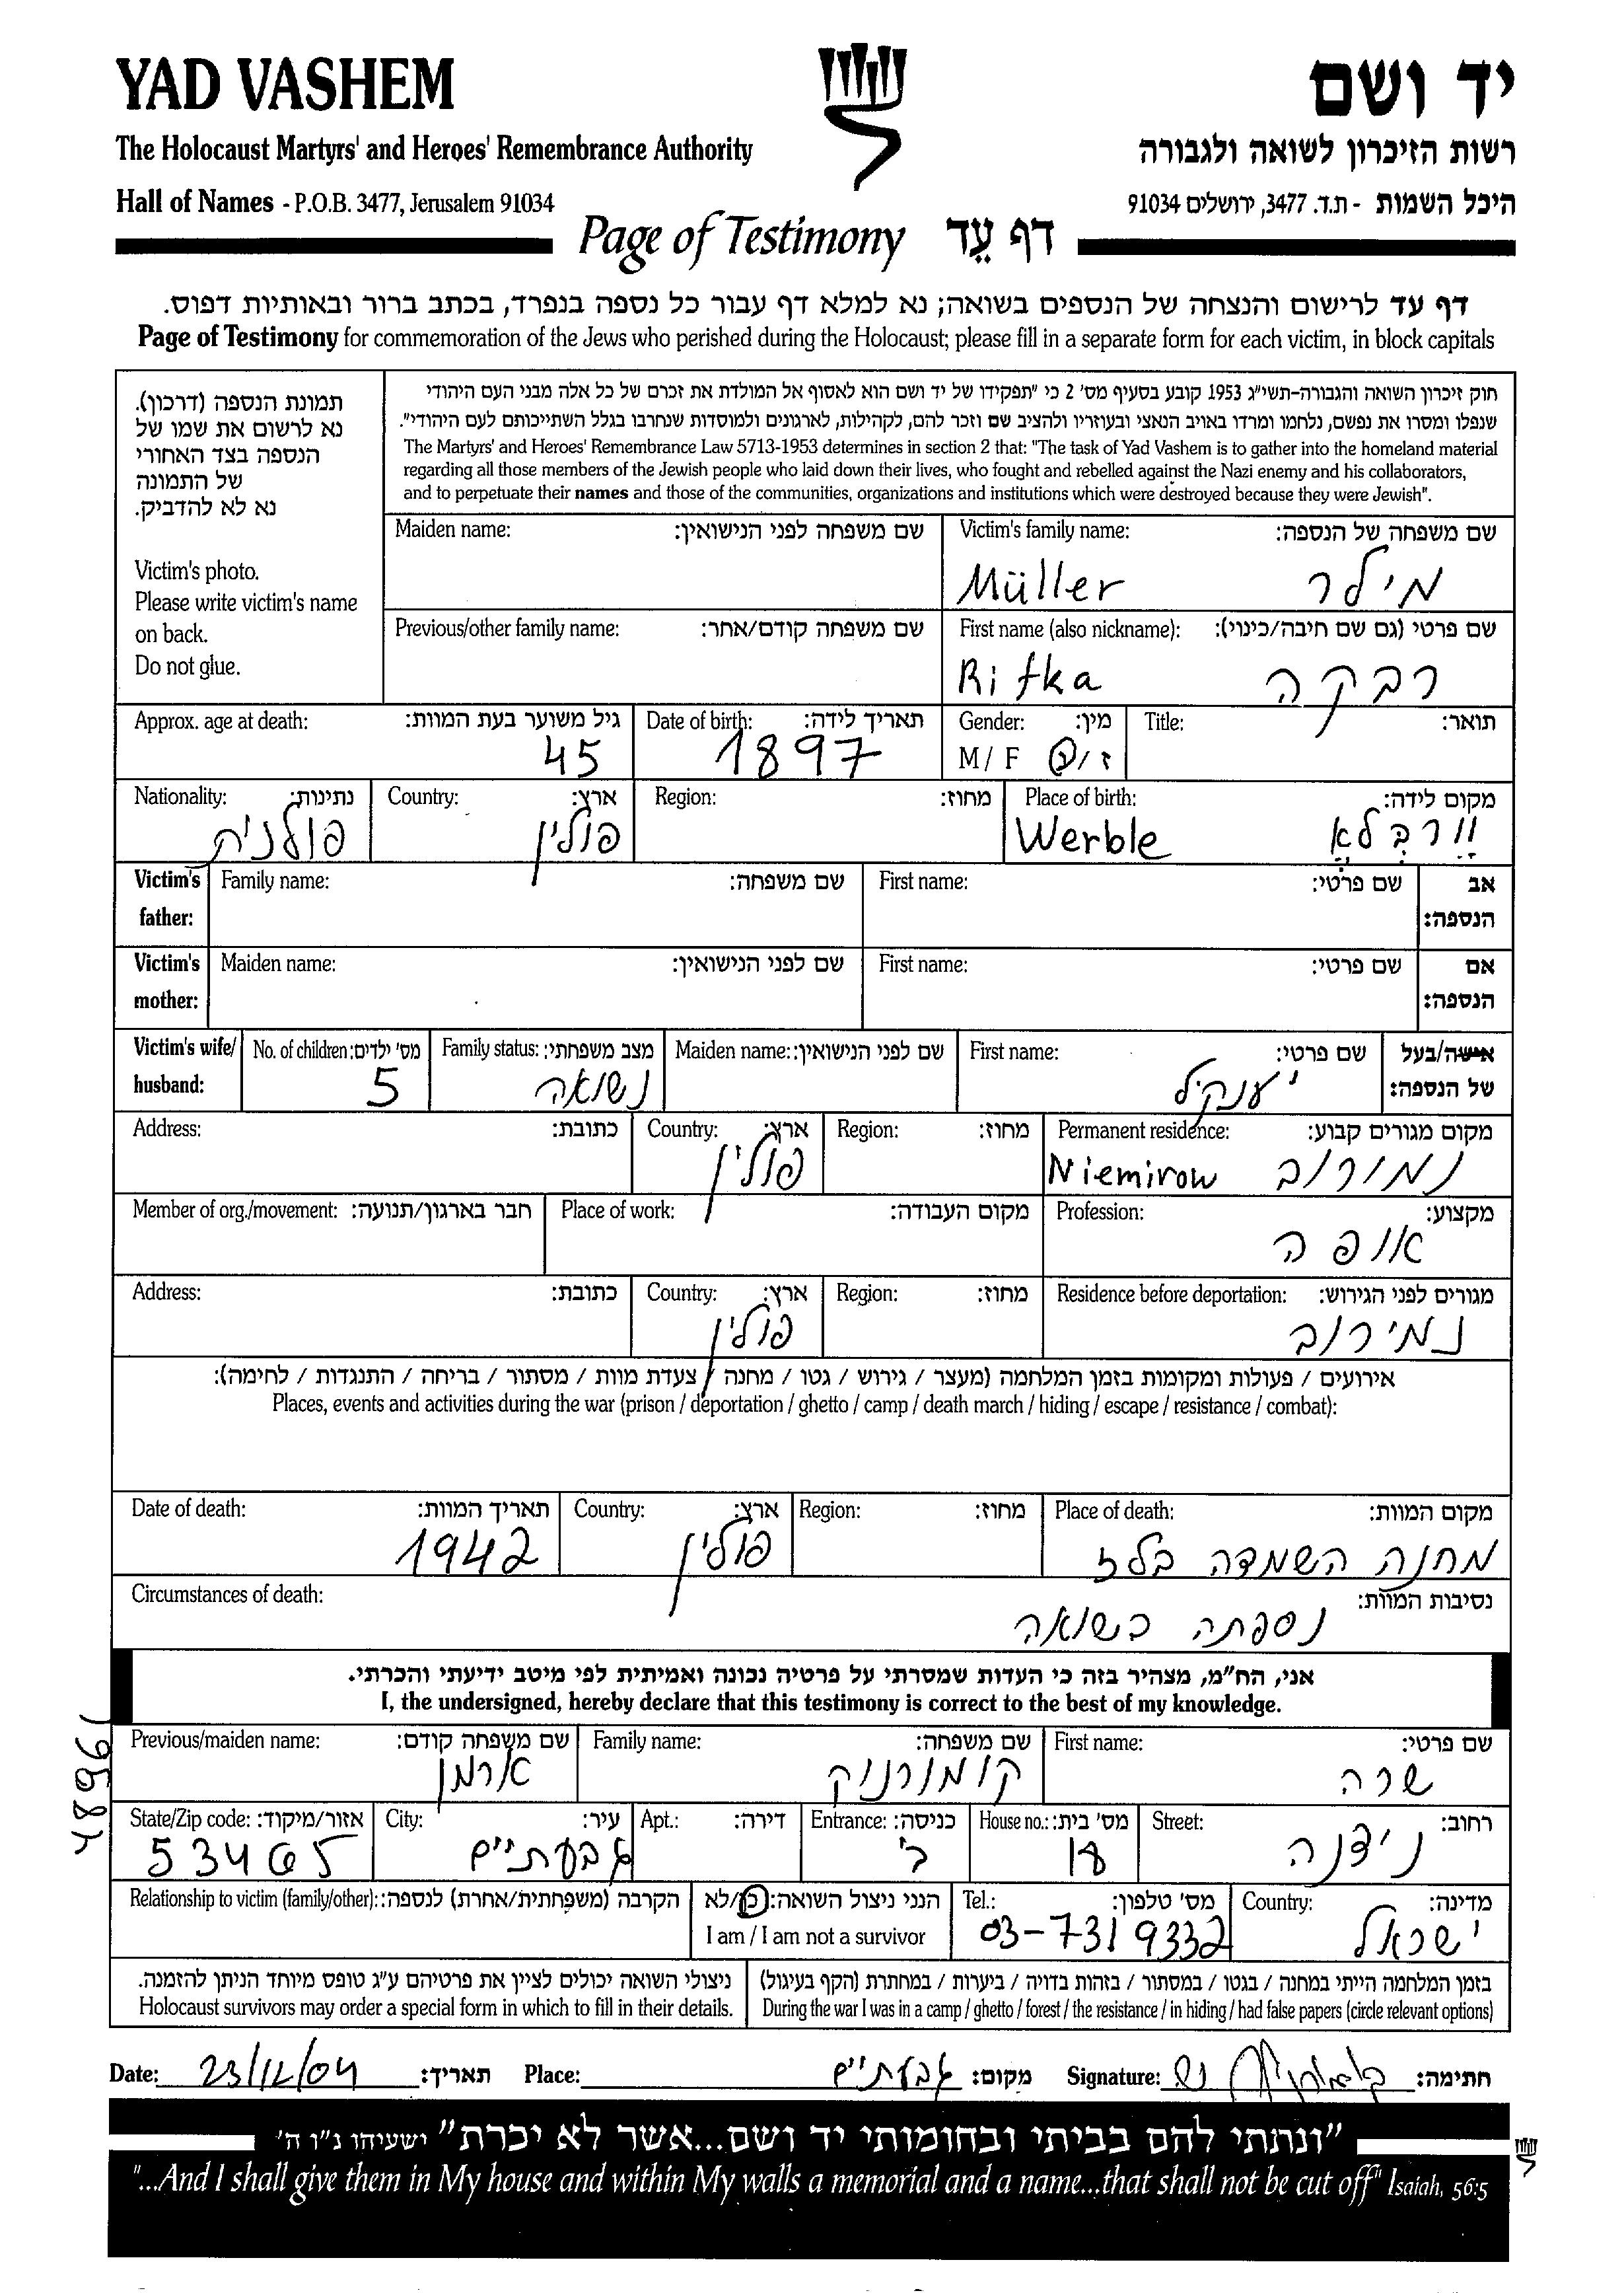 YAD VASHEM
יד ושם
The Holocaust Martyrs' and Heroes' Remembrance Authority
רשות הזיכרון לשואה ולגבורה
Hall of Names - P.O.B. 3477, Jerusalem 91034
היכל השמות - ת.ד. 3477, ירושלים 91034
Page of Testimony דף עֵד
דף עד לרישום והנצחה של הנספים בשואה; נא למלא דף עבור כל נספה בנפרד, בכתב ברור ובאותיות דפוס.
Page of Testimony for commemoration of the Jews who perished during the Holocaust; please fill in a separate form for each victim, in block capitals
תמונת הנספה (דרכון).
נא לרשום את שמו של
הנספה בצד האחורי
של התמונה
נא לא להדביק.
Victim's photo.
Please write victim's name
on back.
Do not glue.
חוק זיכרון השואה והגבורה-תשי"ג 1953 קובע בסעיף מס' 2 כי "תפקידו של יד ושם הוא לאסוף אל המולדת את זכרם של כל אלה מבני העם היהודי
שנפלו ומסרו את נפשם, נלחמו ומרדו באויב הנאצי ובעוזריו ולהציב שם וזכר להם, לקהילות, לארגונים ולמוסדות שנחרבו בגלל השתייכותם לעם היהודי".
The Martyrs' and Heroes' Remembrance Law 5713-1953 determines in section 2 that: "The task of Yad Vashem is to gather into the homeland material
regarding all those members of the Jewish people who laid down their lives, who fought and rebelled against the Nazi enemy and his collaborators,
and to perpetuate their names and those of the communities, organizations and institutions which were destroyed because they were Jewish".
Maiden name: שם משפחה לפני הנישואין: Victim's family name: שם משפחה של הנספה:
Müller מילר
Previous/other family name: שם משפחה קודם/אחר: First name (also nickname): שם פרטי (גם שם חיבה/כינוי):
Rifka רבקה
Approx. age at death: גיל משוער בעת המוות: Date of birth: תאריך לידה: Gender: מין: Title: תואר:
45 1897 M / F ז/נ
Nationality: נתינות: Country: ארץ: Region: מחוז: Place of birth: מקום לידה:
פולנית פולין Werble וורבלא
Victim's father: Family name: שם משפחה: First name: שם פרטי: אב הנספה:
Victim's mother: Maiden name: שם לפני הנישואין: First name: שם פרטי: אם הנספה:
Victim's wife/ husband: No. of children: מס' ילדים: Family status: מצב משפחתי: Maiden name: שם לפני הנישואין: First name: שם פרטי: אישה/בעל של הנספה:
5 נשואה יענקיל
Address: כתובת: Country: ארץ: Region: מחוז: Permanent residence: מקום מגורים קבוע:
פולין Niemirow נמורוב
Member of org./movement: חבר בארגון/תנועה: Place of work: מקום העבודה: Profession: מקצוע:
אופה
Address: כתובת: Country: ארץ: Region: מחוז: Residence before deportation: מגורים לפני הגירוש:
פולין נמירוב
אירועים / פעולות ומקומות בזמן המלחמה (מעצר / גירוש / גטו / מחנה / צעדת מוות / מסתור / בריחה / התנגדות / לחימה):
Places, events and activities during the war (prison / deportation / ghetto / camp / death march / hiding / escape / resistance / combat):
Date of death: תאריך המוות: Country: ארץ: Region: מחוז: Place of death: מקום המוות:
1942 פולין מחנה השמדה בלז
Circumstances of death: נסיבות המוות:
נספתה בשואה
אני, הח"מ, מצהיר בזה כי העדות שמסרתי על פרטיה נכונה ואמיתית לפי מיטב ידיעתי והכרתי.
I, the undersigned, hereby declare that this testimony is correct to the best of my knowledge.
Previous/maiden name: שם משפחה קודם: Family name: שם משפחה: First name: שם פרטי:
ארמן קומורניק שרה
State/Zip code: אזור/מיקוד: City: עיר: Apt.: דירה: Entrance: כניסה: House no.: מס' בית: Street: רחוב:
53465 גבעתיים ב' 18 ניצנה
Relationship to victim (family/other): הקרבה (משפחתית/אחרת) לנספה: הנני ניצול השואה: כן/לא Tel.: מס' טלפון: Country: מדינה:
I am / I am not a survivor 03-7319332 ישראל
ניצולי השואה יכולים לציין את פרטיהם ע"ג טופס מיוחד הניתן להזמנה. בזמן המלחמה הייתי במחנה / בגטו / במסתור / בזהות בדויה / ביערות / במחתרת (הקף בעיגול)
Holocaust survivors may order a special form in which to fill in their details. During the war I was in a camp / ghetto / forest / the resistance / in hiding / had false papers (circle relevant options)
Date: 23/12/04 תאריך: Place: גבעתיים מקום: Signature: חתימה:
"ונתתי להם בביתי ובחומותי יד ושם...אשר לא יכרת" ישעיהו נ"ו ה'
"...And I shall give them in My house and within My walls a memorial and a name...that shall not be cut off" Isaiah, 56:5